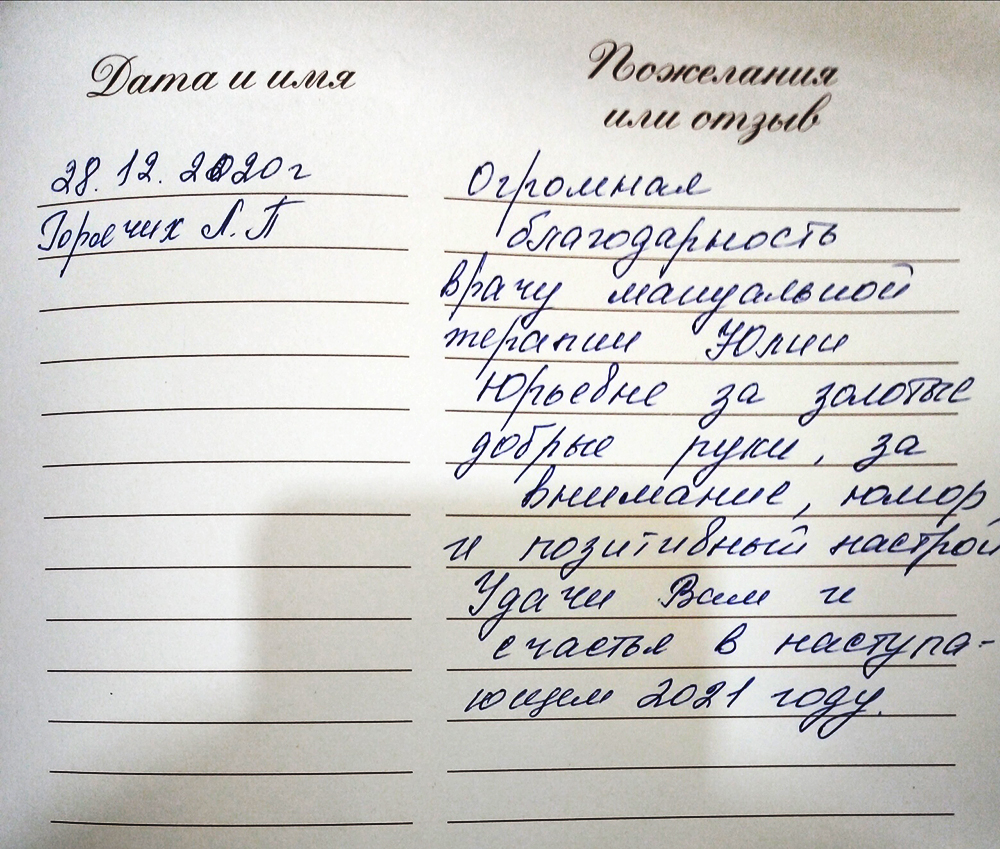 Дата и имя
Пожелания
или отзыв
28. 12. 2020 г
Горячих Л. П
Огромная
благодарность
врачу мануальной
терапии Юлии
Юрьевне за золотые
добрые руки, за
внимание, юмор
и позитивный настрой
Удачи Вам и
счастья в наступа-
ющем 2021 году.